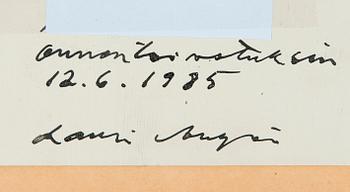 onnentoivotuksin
12.6.1985
Lauri Anzio